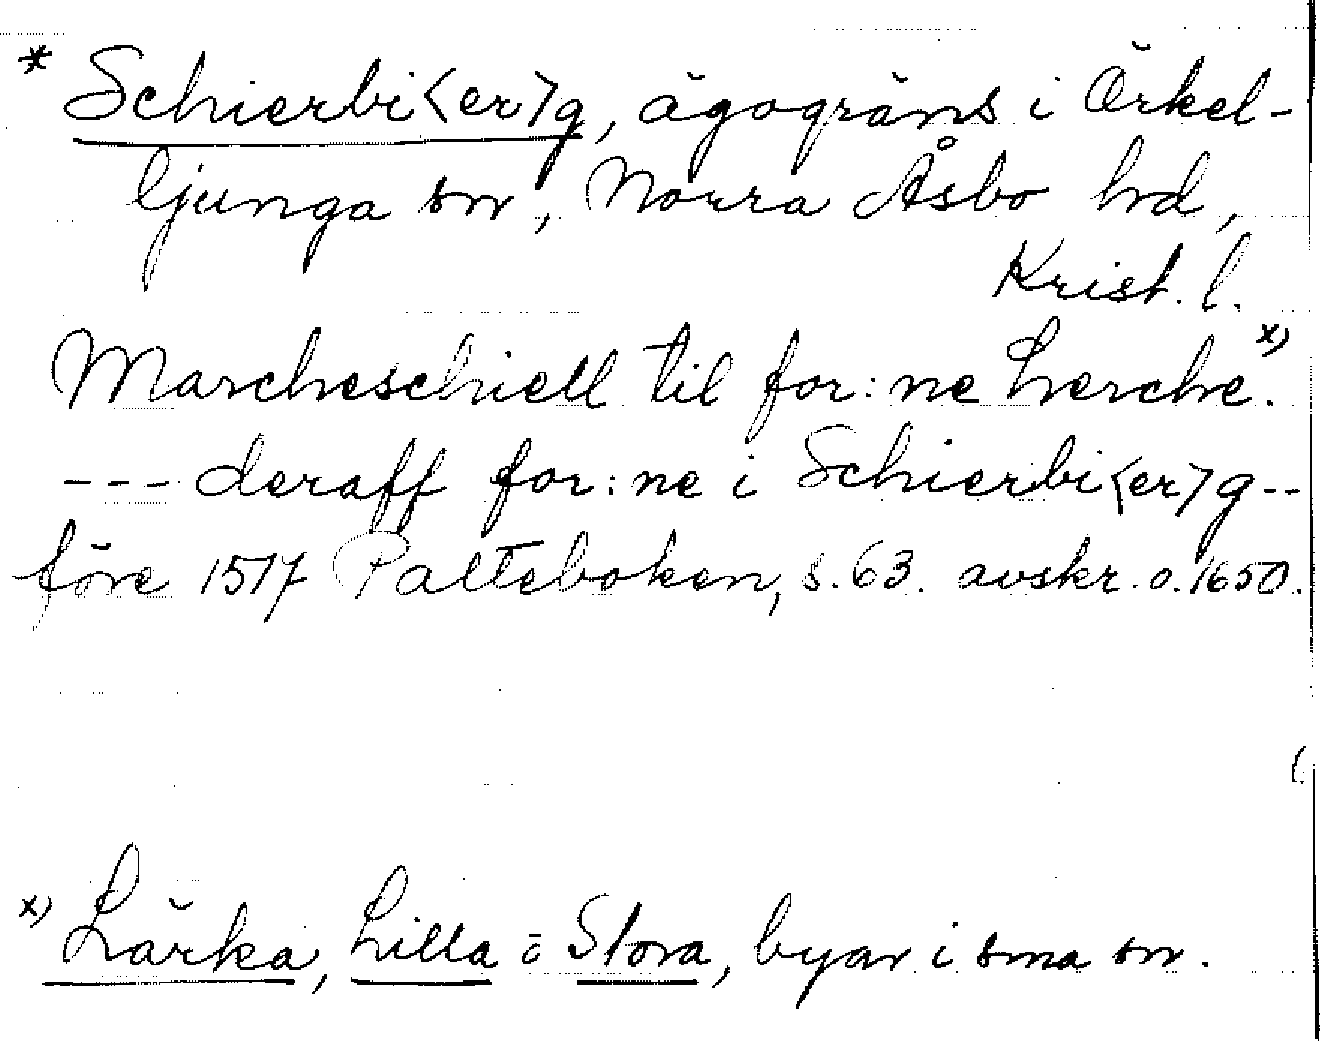 * Schierbi<er>g, ägogräns i Örkel-
ljunga sn, Norra Åsbo hd,
Krist. l.
Marcheschiell til for:ne Lerche.x)
--- deraff for:ne i Schierbi<er>g--
före 1517 Palteboken, s. 63. avskr. o. 1650.
x) Lärka, Lilla o Stora, byar i sma sn.